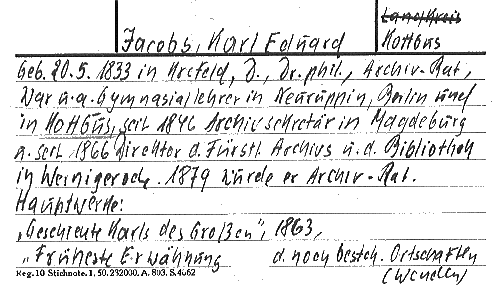 Landkreis
Jacobs, Karl Eduard Kottbus
Geb. 20.5. 1833 in Krefeld, D., Dr. phil., Archiv-Rat,
War u.a. Gymnasiallehrer in Neuruppin, Berlin und
in Kottbus, seit 1846 Archivsekretär in Magdeburg
u. seit 1866 Direktor d. Fürstl. Archivs u. d. Bibliothek
in Wernigerode. 1879 wurde er Archiv-Rat.
Hauptwerke:
„Geschichte Karls des Großen", 1863,
„Früheste Erwähnung d. noch besteh. Ortschaften
Reg. 10 Stichnote. 1, 50. 232000. A. 803. S. 4662 (Wenden)